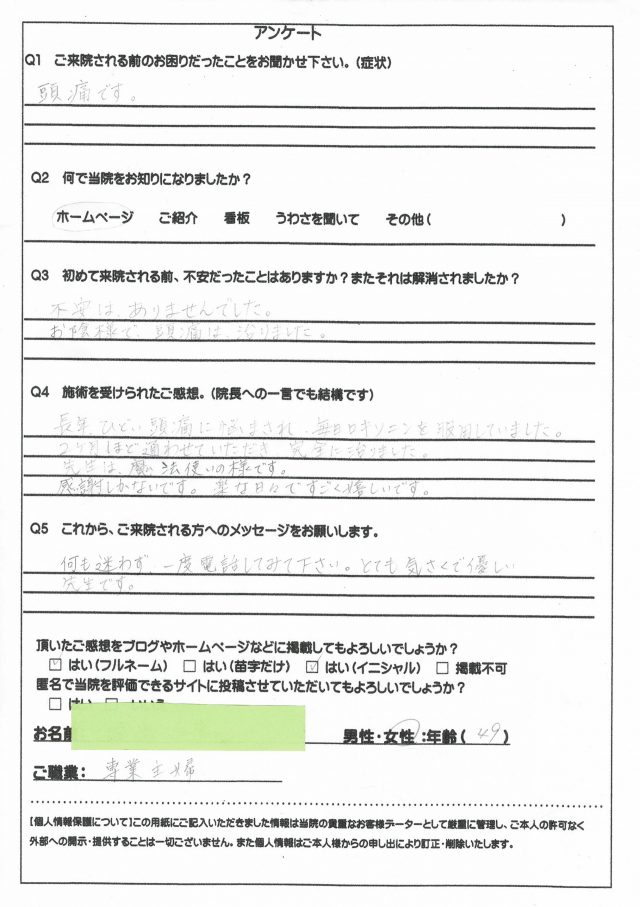 アンケート
Q1 ご来院される前のお困りだったことをお聞かせ下さい。(症状)
頭痛です。
Q2 何で当院をお知りになりましたか?
ホームページ ご紹介 看板 うわさを聞いて その他( )
Q3 初めて来院される前、不安だったことはありますか?またそれは解消されましたか?
不安は、ありませんでした。
お陰様で、頭痛は、治りました。
Q4 施術を受けられたご感想。(院長への一言でも結構です)
長年ひどい頭痛に悩まされ、毎日ロキソニンを服用していました。
2ヶ月ほど通わせていただき、完全に治りました。
先生は、魔法使いの様です。
感謝しかないです。楽な日々ですごく嬉しいです。
Q5 これから、ご来院される方へのメッセージをお願いします。
何も迷わず、一度電話してみて下さい。とても気さくで優しい
先生です。
頂いたご感想をブログやホームページなどに掲載してもよろしいでしょうか?
☑ はい(フルネーム) □ はい(苗字だけ) ☑ はい(イニシャル) □ 掲載不可
匿名で当院を評価できるサイトに投稿させていただいてもよろしいでしょうか?
□ はい □ いいえ
お名前 男性・女性:年齢( 49 )
ご職業: 専業主婦
【個人情報保護について】この用紙にご記入いただきました情報は当院の貴重なお客様データーとして厳重に管理し、ご本人の許可なく
外部への開示・提供することは一切ございません。また個人情報はご本人様からの申し出により訂正・削除いたします。